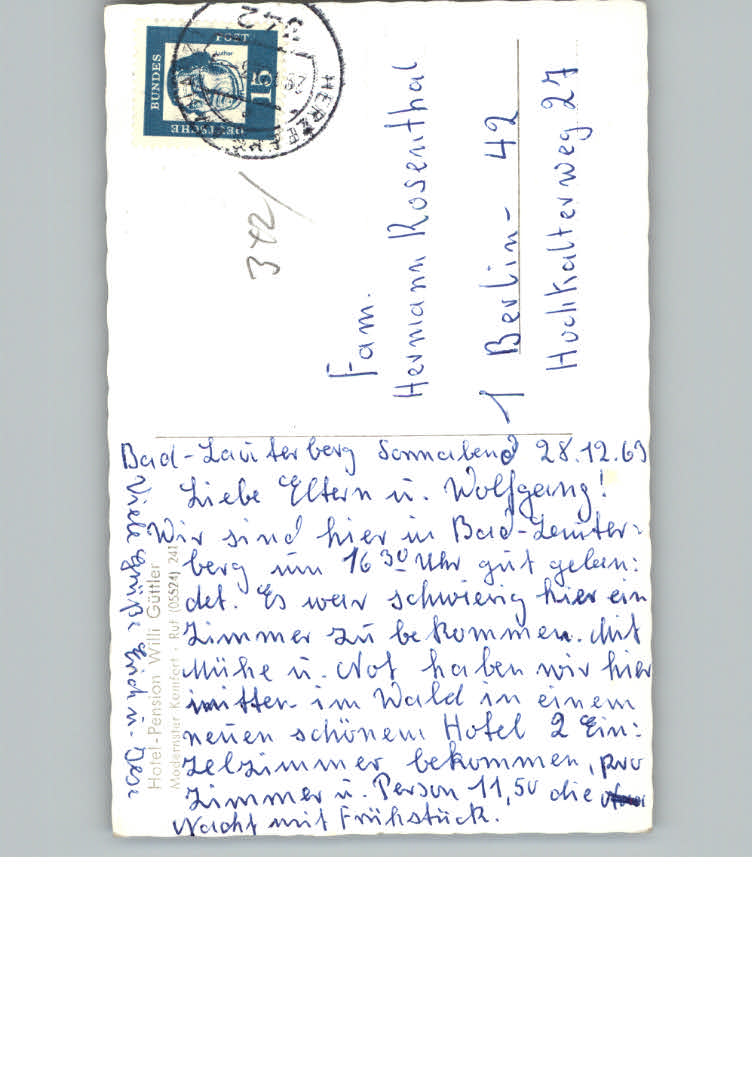 Bad-Lauterberg Sonnabend 28.12.63
Liebe Eltern u. Wolfgang!
Wir sind hier in Bad-Lauter:
berg um 16 30 Uhr gut gelan:
det. Es war schwierig hier ein
Zimmer zu bekommen. Mit
Mühe u. Not haben wir hier
mitten im Wald in einem
neuen schönem Hotel 2 Ein:
zelzimmer bekommen, pro
Zimmer u. Person 11,50 die
Nacht mit Frühstück.
Viele Grüße Erich u.
Hotel-Pension Willi Güttler
Modernster Komfort · Ruf (05524) 241
Fam.
Hermann Rosenthal
1 Berlin- 42
Hochkalterweg 27
342/
DEUTSCHE
BUNDES
POST
15
Luther
342